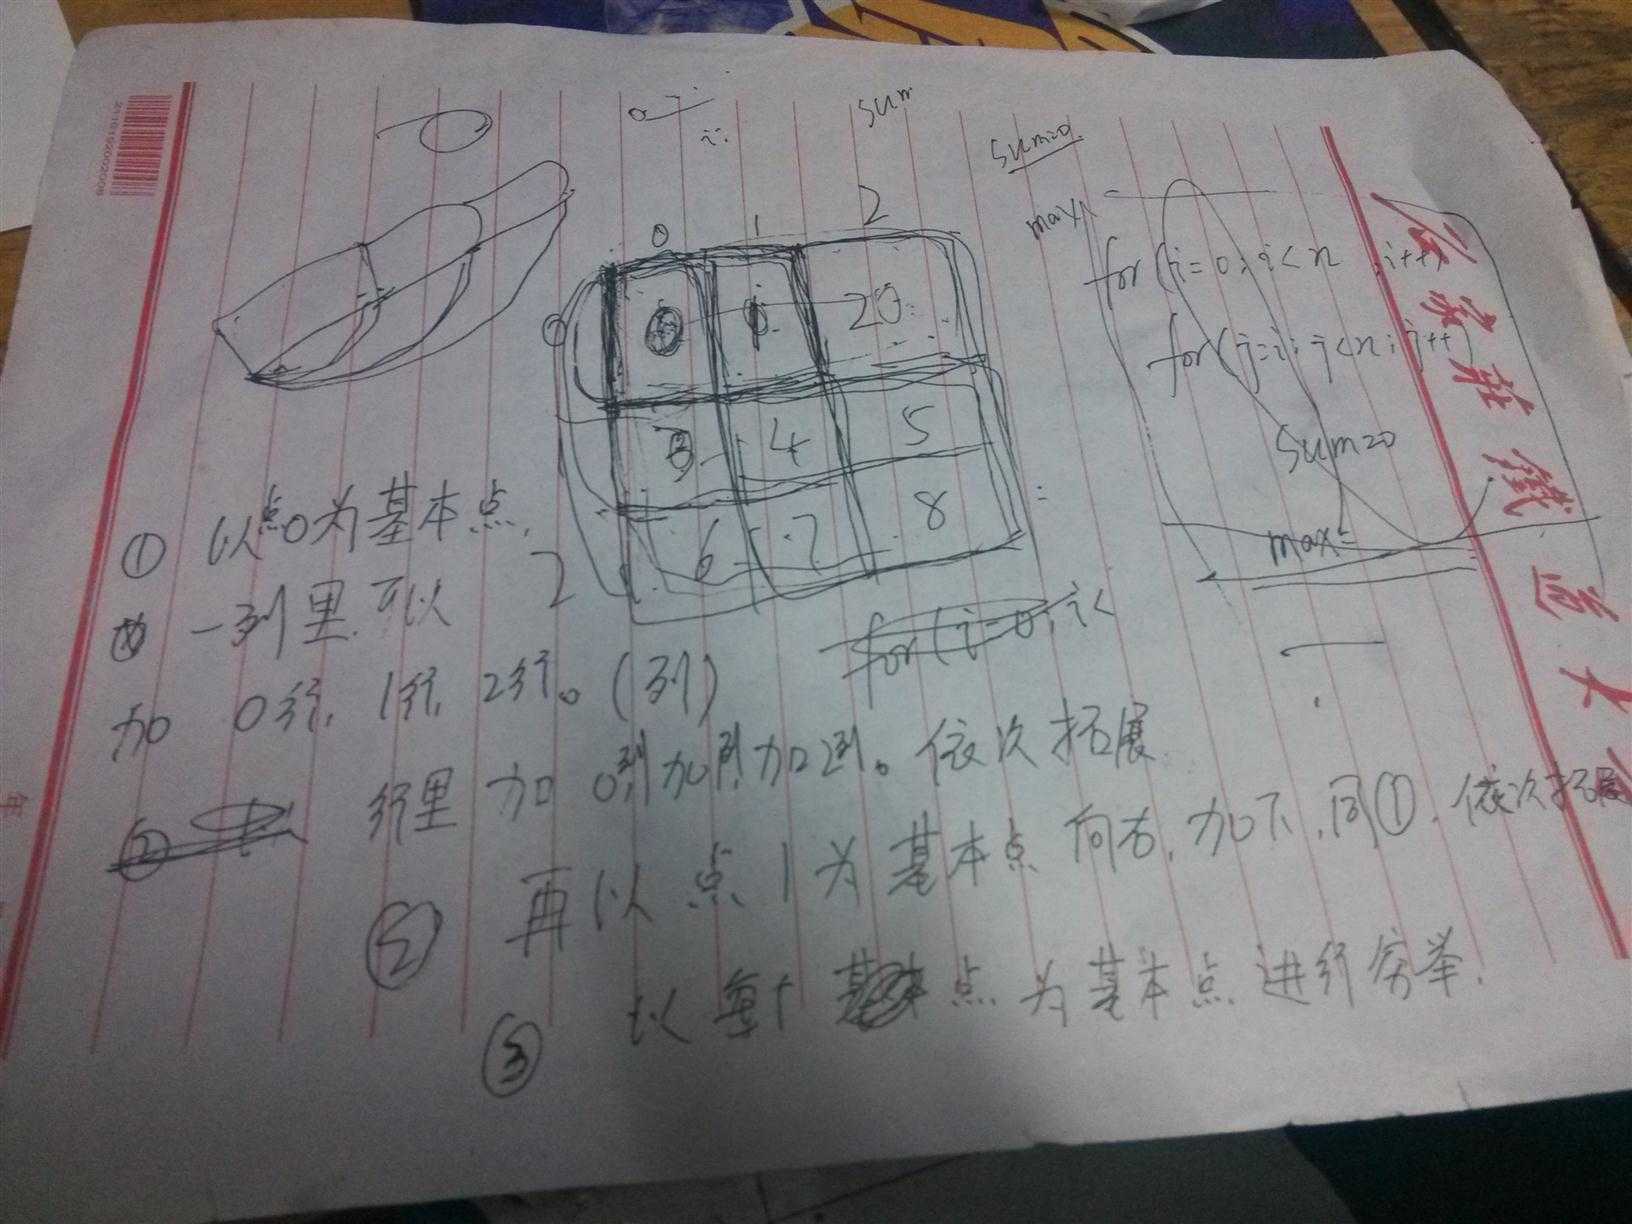 sum
sum=0
max
for(i=0;i<n;i++)
for(j=i;j<n;j++)
sum=0
max=
0 1 2
0 1 20
3 4 5
2 6 7 8
for(i=0;i<
① 以点0为基本点.
一列里.可以
加 0行,1行,2行。(列)
行里加0列加1列加2列。依次拓展
② 再以点1为基本点向右,加下,同①,依次拓展
③ 以每个 点为基本点进行穷举.
石家莊鐵道大
年